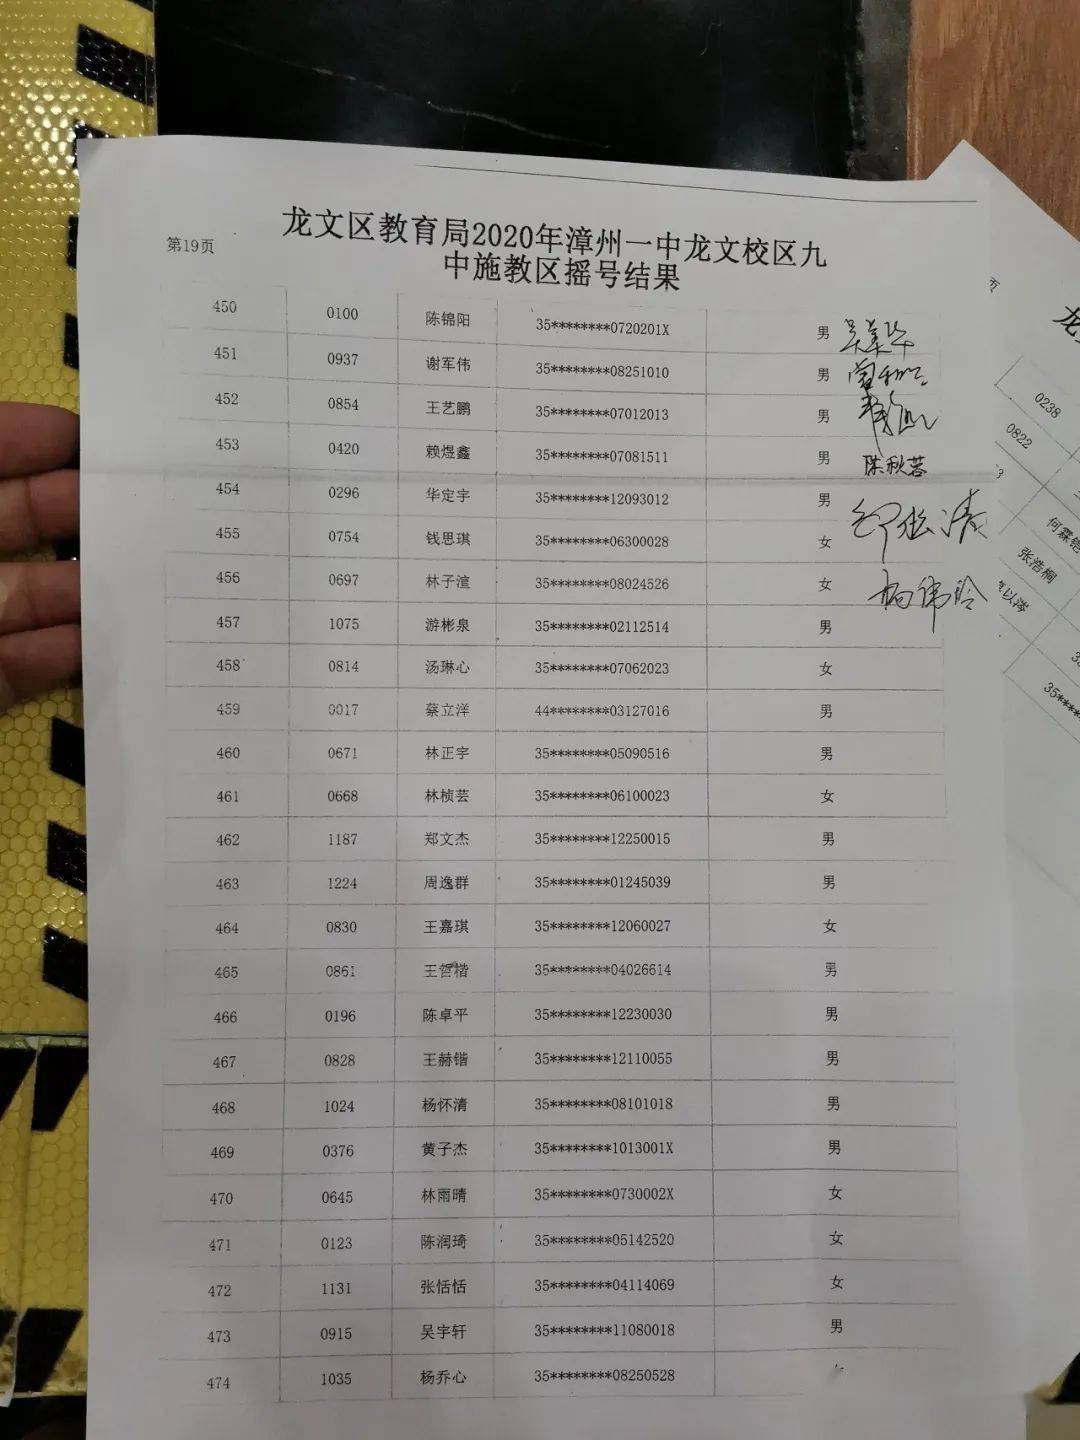 第19页
龙文区教育局2020年漳州一中龙文校区九
中施教区摇号结果
450 0100 陈锦阳 35********0720201X 男
451 0937 谢军伟 35********08251010 男
452 0854 王艺鹏 35********07012013 男
453 0420 赖煜鑫 35********07081511 男 陈秋蓉
454 0296 华定宇 35********12093012 男
455 0754 钱思琪 35********06300028 女
456 0697 林子渲 35********08024526 女
457 1075 游彬泉 35********02112514 男
458 0814 汤琳心 35********07062023 女
459 0017 蔡立洋 44********03127016 男
460 0671 林正宇 35********05090516 男
461 0668 林桢芸 35********06100023 女
462 1187 郑文杰 35********12250015 男
463 1224 周逸群 35********01245039 男
464 0830 王嘉琪 35********12060027 女
465 0861 王哲楷 35********04026614 男
466 0196 陈卓平 35********12230030 男
467 0828 王赫锴 35********12110055 男
468 1024 杨怀清 35********08101018 男
469 0376 黄子杰 35********1013001X 男
470 0645 林雨晴 35********0730002X 女
471 0123 陈润琦 35********05142520 女
472 1131 张恬恬 35********04114069 女
473 0915 吴宇轩 35********11080018 男
474 1035 杨乔心 35********08250528
页
龙
0238
0822
何霖铠
张浩桐
以涔
35****